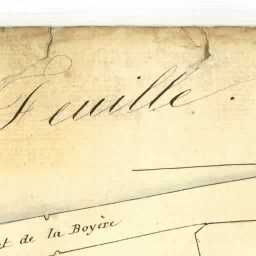 Feuille.
t de la Boyère